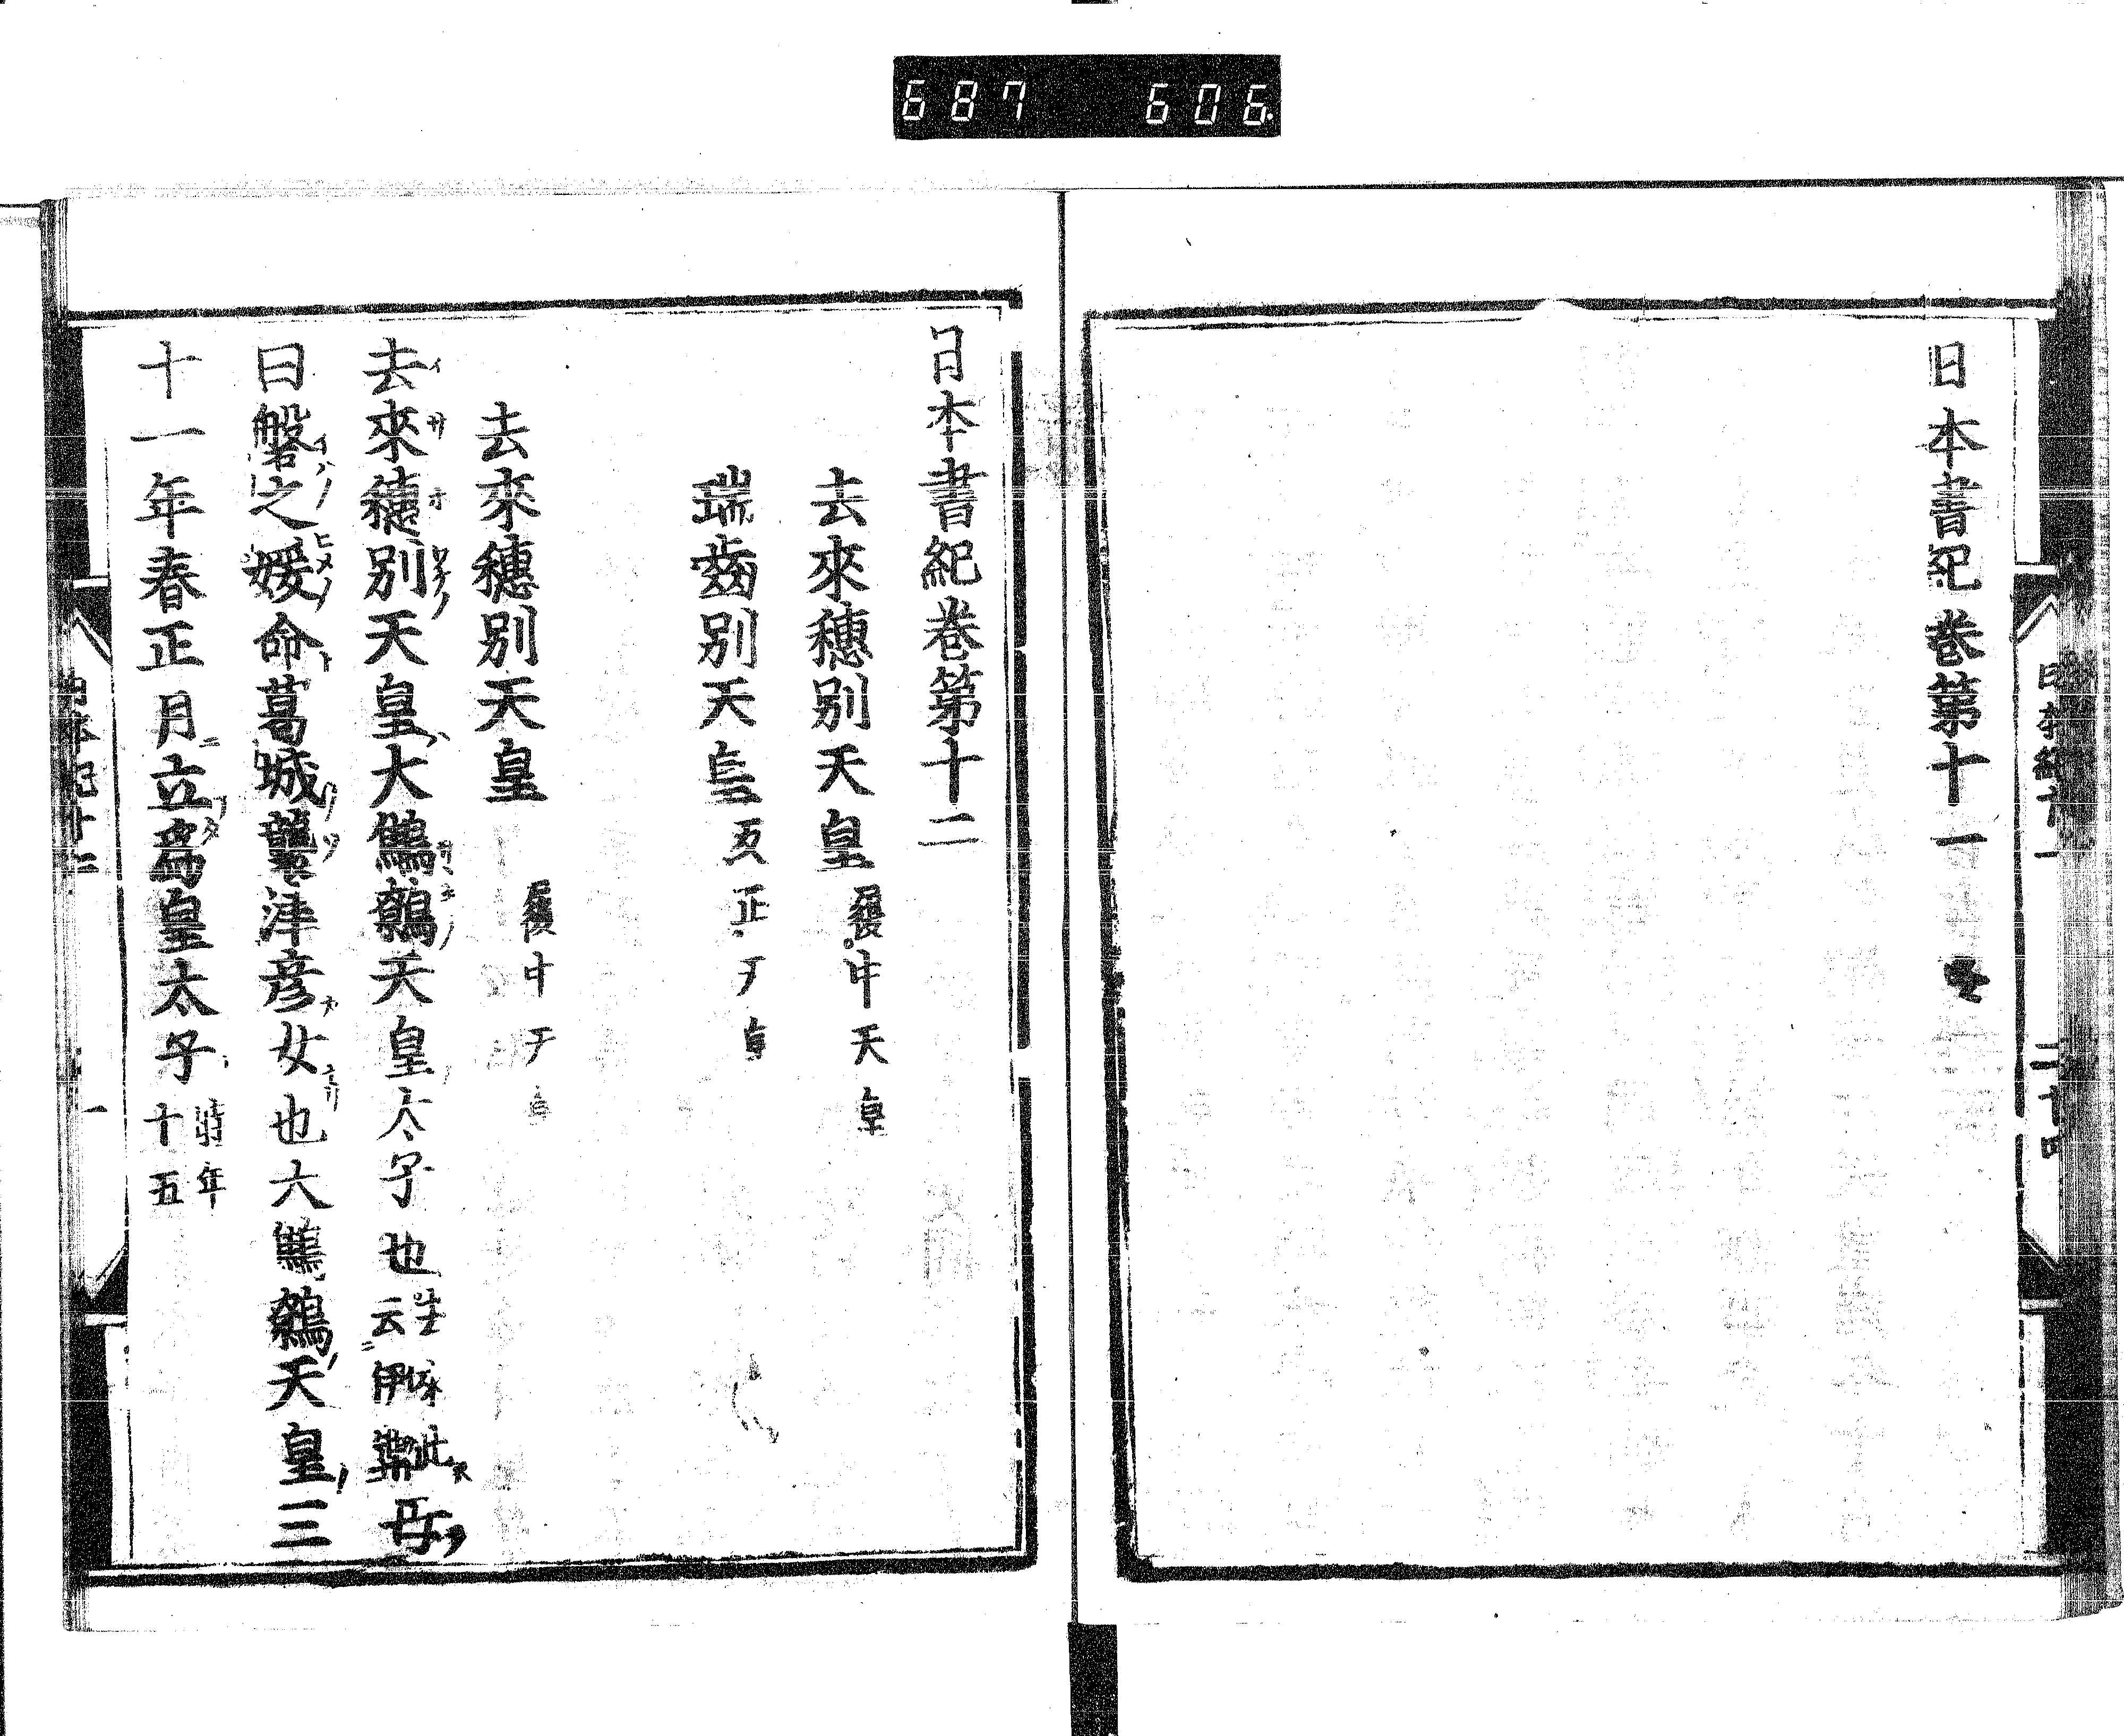 687 606
日本書紀巻第十一
日本紀十一 二十四
日本書紀巻第十二
去來穗別天皇 履中天皇
瑞齒別天皇 反正天皇
去來穗別天皇 履中天皇
去來穗別天皇大鷦鷯天皇太子也 去來此云伊弉 母
曰磐之媛命葛城襲津彦女也大鷦鷯天皇三
十一年春正月立爲皇太子 時年十五
日本紀十二 一